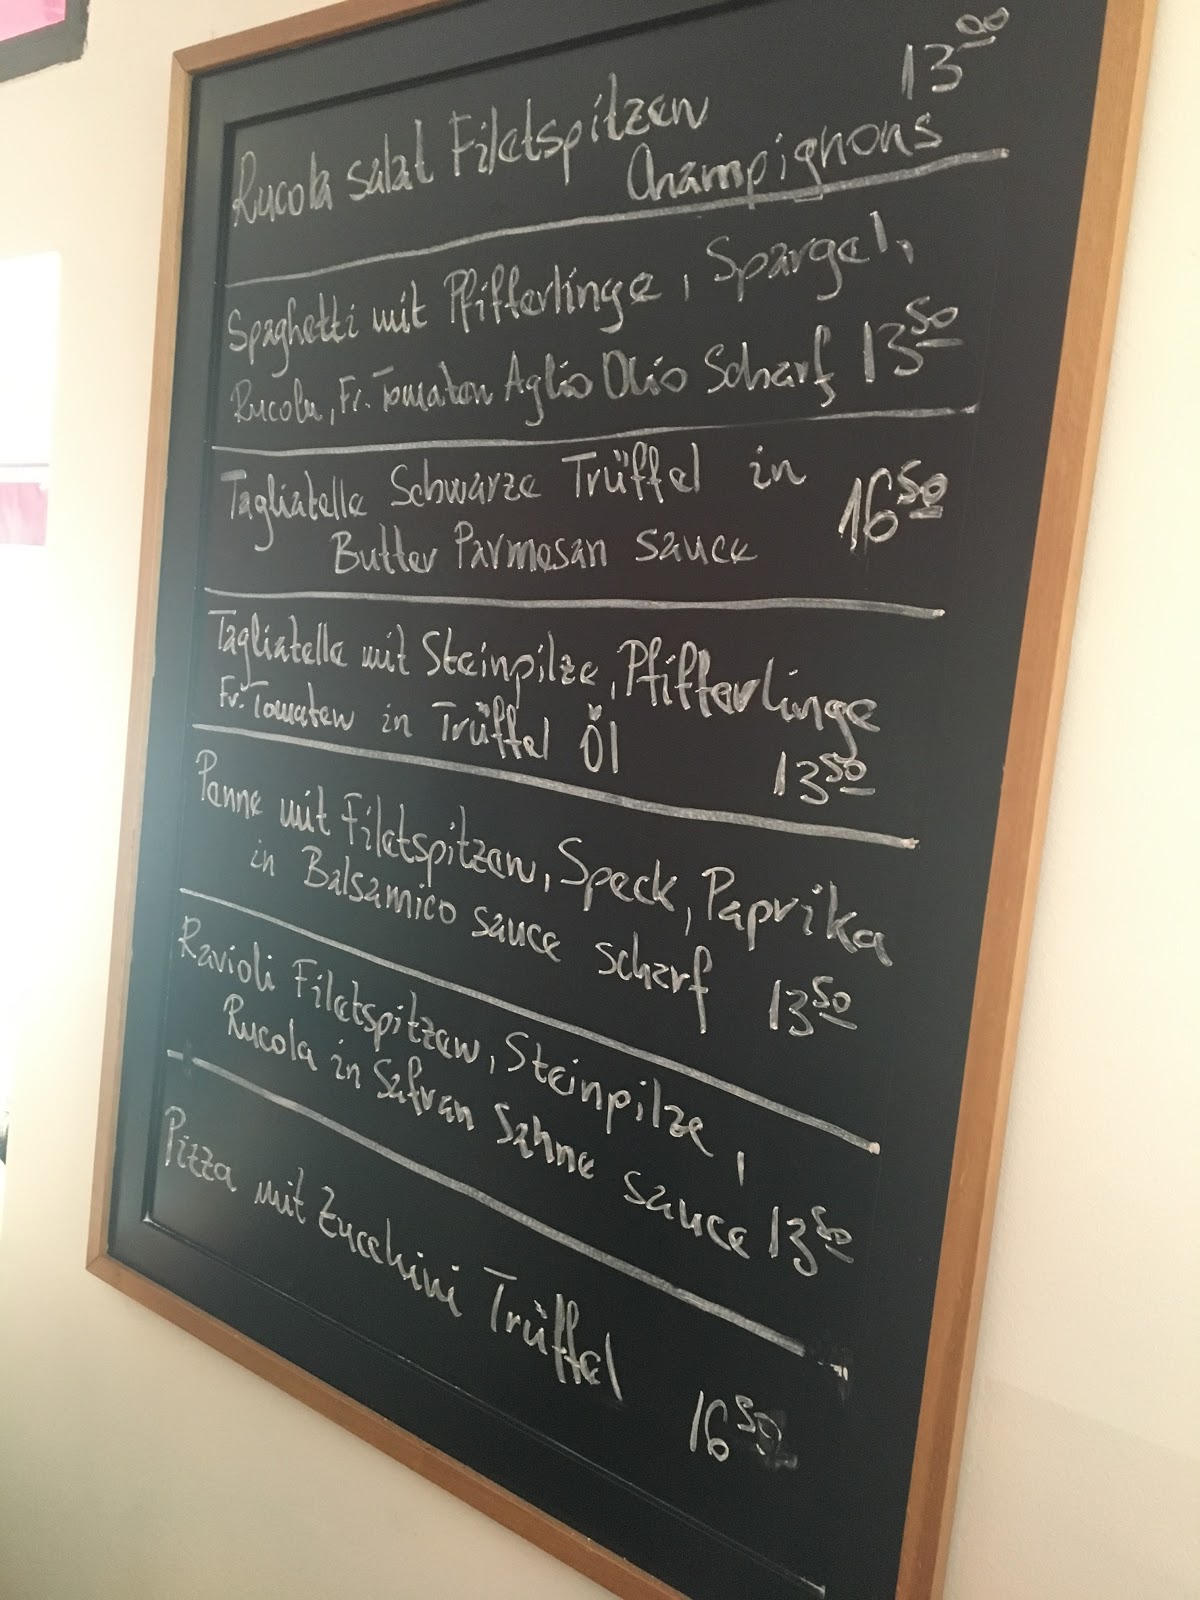 Rucola salat Filetspitzen 13⁰⁰
Champignons
Spaghetti mit Pfifferlinge, Spargel,
Rucola, Fr. Tomaten Aglio Olio Scharf 13⁵⁰
Tagliatelle Schwarze Trüffel in 16⁵⁰
Butter Parmesan sauce
Tagliatelle mit Steinpilze, Pfifferlinge
Fr. Tomaten in Trüffel Öl 13⁵⁰
Penne mit Filetspitzen, Speck, Paprika
in Balsamico sauce scharf 13⁵⁰
Ravioli Filetspitzen, Steinpilze,
Rucola in Safran Sahne sauce 13⁵⁰
Pizza mit Zucchini Trüffel
16⁵⁰